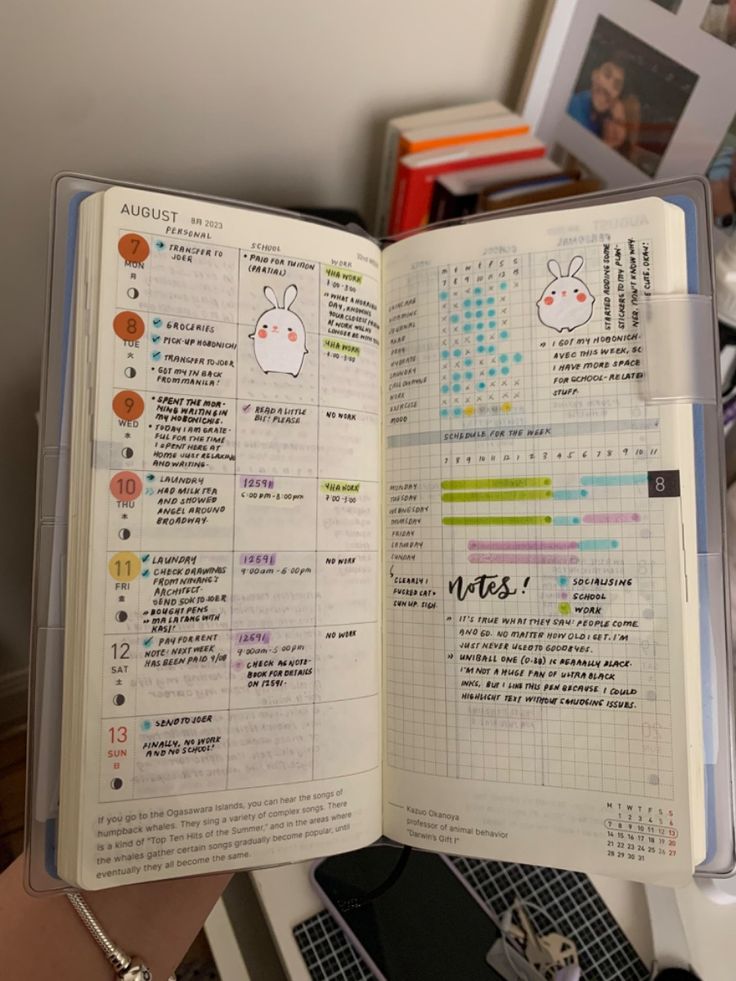 AUGUST 8月 2023
PERSONAL
SCHOOL
WORK
7
MON
月
→ TRANSFER TO
JOER
• PAID FOR TUITION
(PARTIAL)
4HA WORK
1:00-3:00
» WHAT A HORRIBLE
DAY, KNOWING
YOUR CLOSEST FRIEND
AT WORK WON'T
LONGER BE WITH YOU
8
TUE
火
✓ GROCERIES
✓ PICK-UP HOBONICHI
✓ TRANSFER TO JOER
• GOT MY TN BACK
FROM MANILA!
4HA WORK
4:00-3:00
9
WED
水
• SPENT THE MOR-
NING WRITING IN
MY HOBONICHIS.
• TODAY I AM GRATE-
FUL FOR THE TIME
I SPENT HERE AT
HOME JUST RELAXING
AND WRITING.
✓ READ A LITTLE
BIT! PLEASE
NO WORK
10
THU
木
→ LAUNDRY
» HAD MILK TEA
AND SHOWED
ANGEL AROUND
BROADWAY.
12591
6:00 pm - 8:00 pm
4HA WORK
7:00-3:00
11
FRI
金
✓ LAUNDRY
✓ CHECK DRAWINGS
FROM NINANG'S
ARCHITECT.
SEND 50K TO JOER
» BOUGHT PENS
» MALATANG WITH
KASI!
12591
9:00 am - 5:00 pm
NO WORK
12
SAT
土
✓ PAY FOR RENT
NOTE: NEXT WEEK
HAS BEEN PAID 9/08
12591
9:00 am - 5:00 pm
CHECK AG NOTE-
BOOK FOR DETAILS
ON 12591.
NO WORK
13
SUN
日
SEND TO JOER
FINALLY, NO WORK
AND NO SCHOOL!
If you go to the Ogasawara Islands, you can hear the songs of
humpback whales. They sing a variety of complex songs. There
is a kind of "Top Ten Hits of the Summer," and in the areas where
the whales gather certain songs gradually become popular, until
eventually they all become the same.
M T W T F S S
7 8 9 10 11 12 13
SKINCARE
VITAMINS
JOURNAL
READ
PRAY
HYDRATE
LAUNDRY
CALL GRANDMA
WORK
EXERCISE
MOOD
STARTED ADDING SOME
STICKERS TO MY PLAN-
NER. DON'T KNOW WHY.
CUTE, OKAY!
» I GOT MY HOBONICHI
AVEC THIS WEEK, SO
I HAVE MORE SPACE
FOR SCHOOL-RELATED
STUFF.
SCHEDULE FOR THE WEEK
7 8 9 10 11 12 1 2 3 4 5 6 7 8 9 10 11
MONDAY
TUESDAY
WEDNESDAY
THURSDAY
FRIDAY
SATURDAY
SUNDAY
8
CLEARLY I
FUCKED SAT +
SUN UP. SIGH.
Notes!
SOCIALISING
SCHOOL
WORK
» IT'S TRUE WHAT THEY SAY: PEOPLE COME
AND GO. NO MATTER HOW OLD I GET, I'M
JUST NEVER USED TO GOODBYES.
» UNIBALL ONE (0.38) IS REAAALLY BLACK.
I'M NOT A HUGE FAN OF ULTRA BLACK
INKS, BUT I LIKE THIS PEN BECAUSE I COULD
HIGHLIGHT TEXT WITHOUT SMUDGING ISSUES.
Kazuo Okanoya
professor of animal behavior
"Darwin's Gift I"
M T W T F S S
1 2 3 4 5 6
7 8 9 10 11 12 13
14 15 16 17 18 19 20
21 22 23 24 25 26 27
28 29 30 31